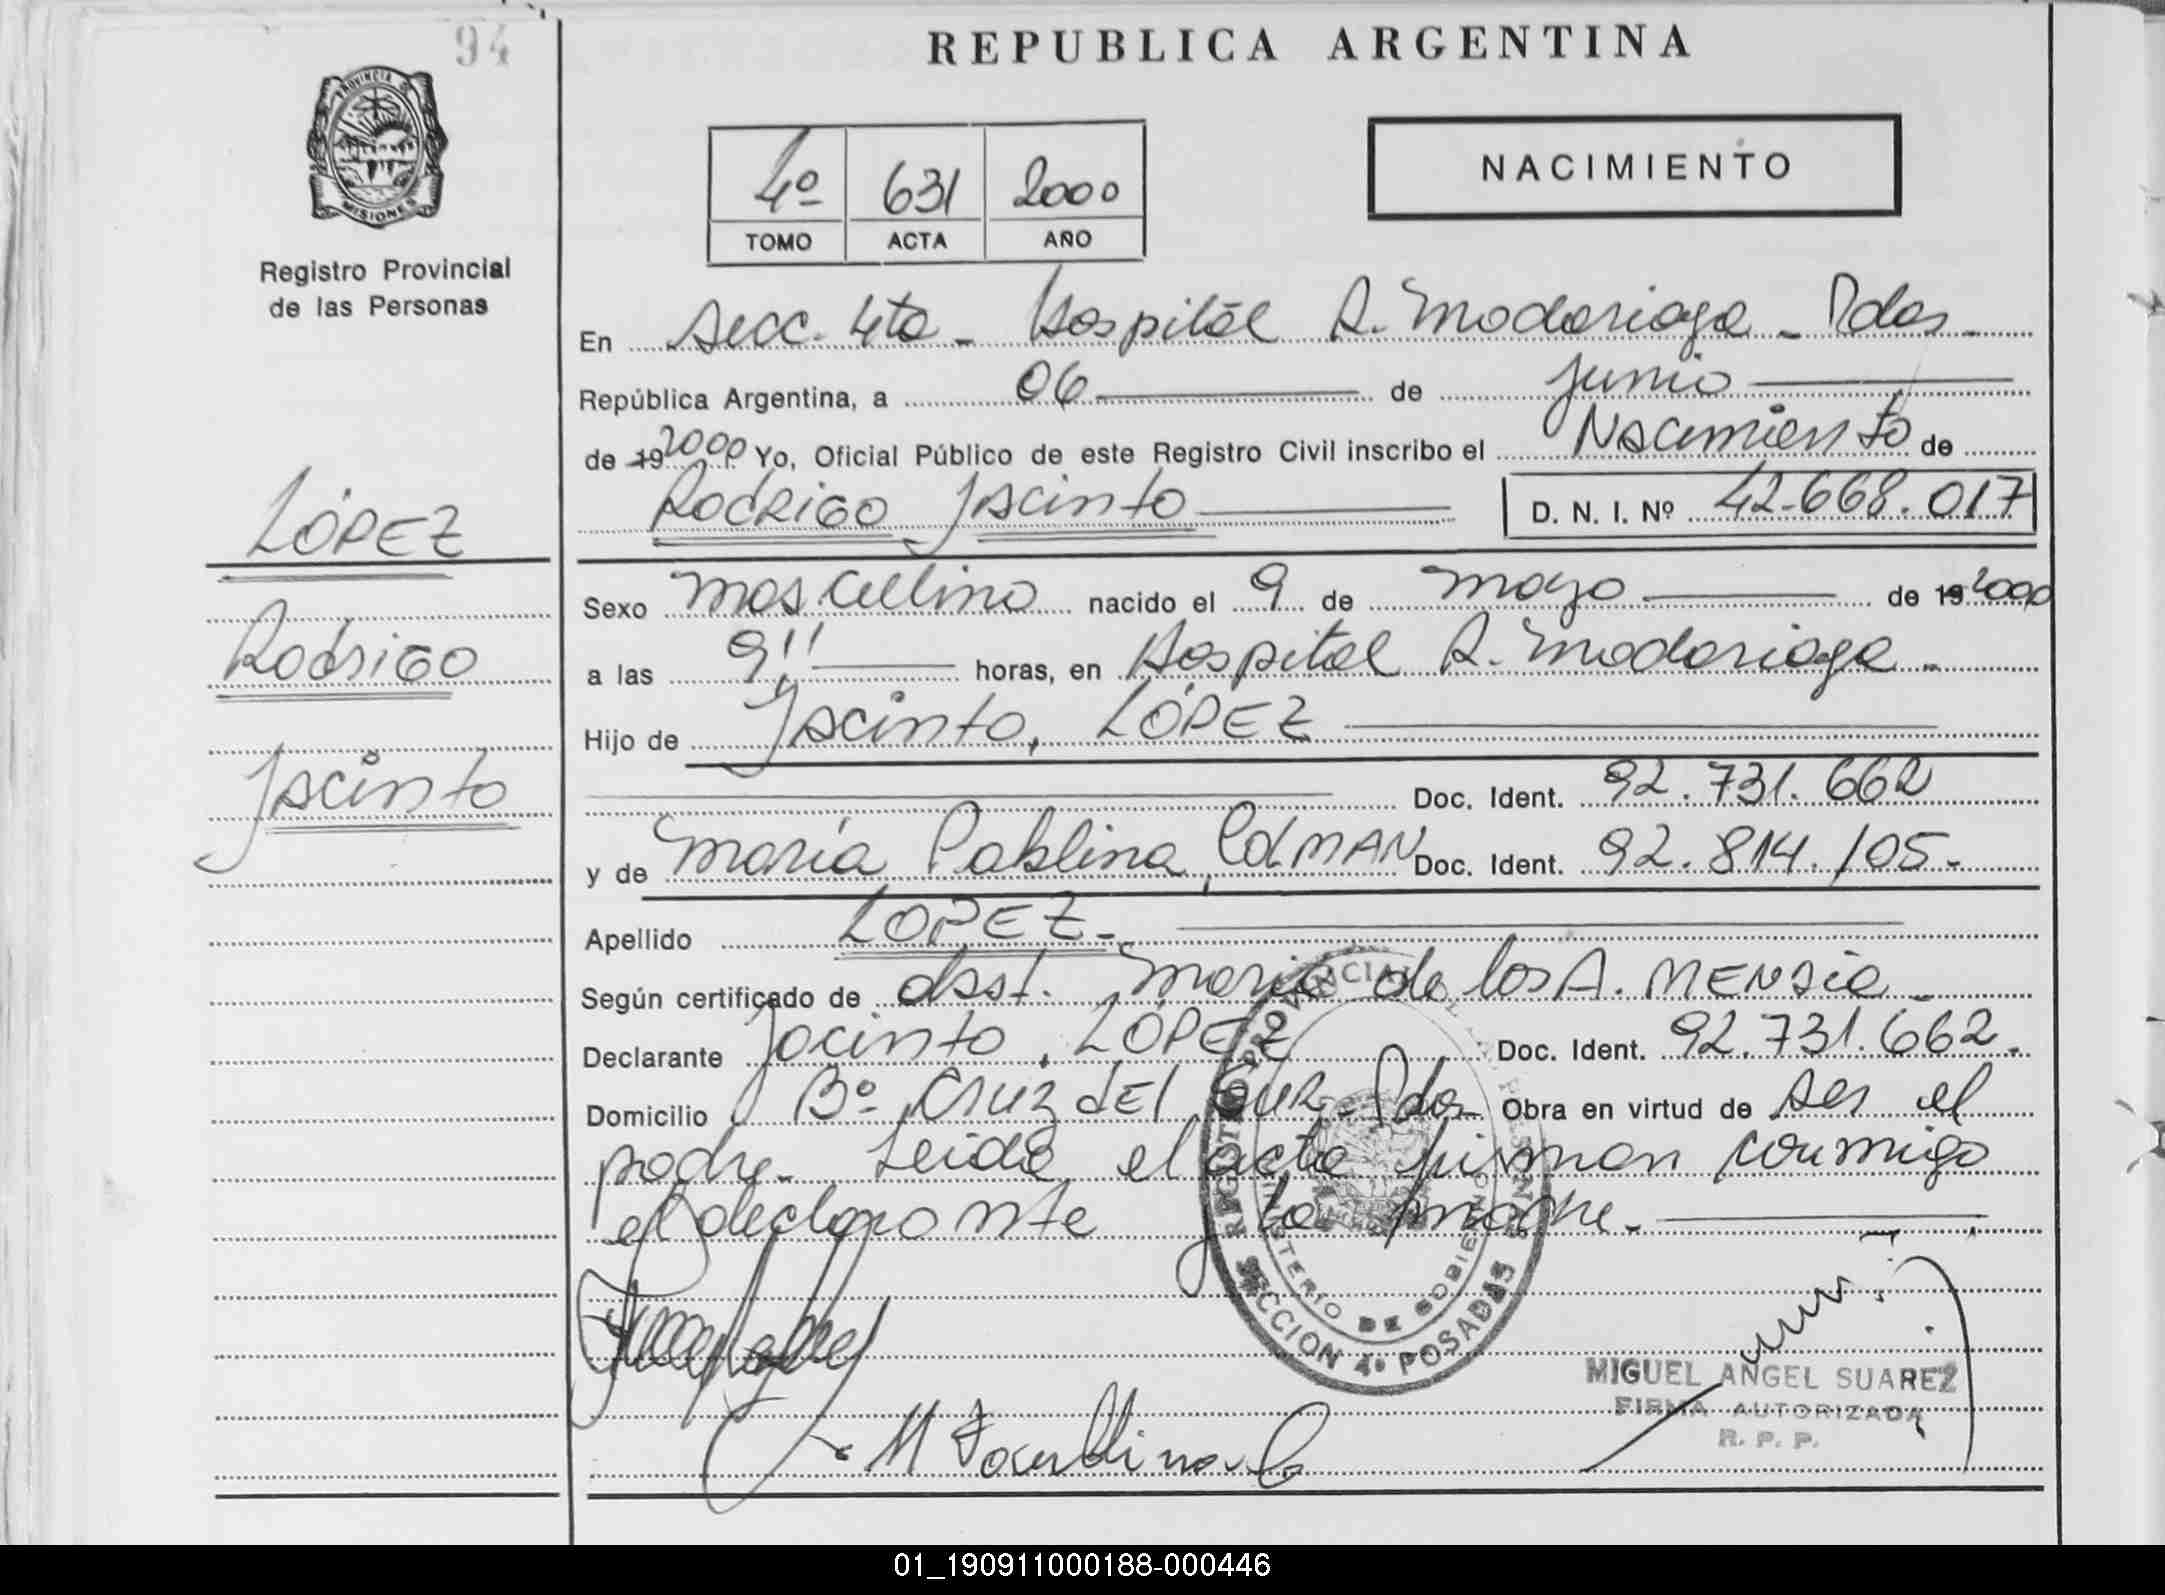 94
REPUBLICA ARGENTINA
PROVINCIA DE
MISIONES
Registro Provincial
de las Personas
4º 631 2000
TOMO ACTA AÑO
NACIMIENTO
En Secc. 4ta - Hospital R. Madariaga - Pdas -
República Argentina, a 06 de junio
de 19 2000 Yo, Oficial Público de este Registro Civil inscribo el Nacimiento de
Rodrigo Jacinto D. N. I. Nº 42.668.017
LÓPEZ
Rodrigo
Jacinto
Sexo masculino nacido el 9 de mayo de 19 2000
a las 9'' horas, en Hospital R. Madariaga -
Hijo de Jacinto, LÓPEZ
Doc. Ident. 92.731.662
y de María Pablina, Colman Doc. Ident. 92.814.105-
Apellido LOPEZ-
Según certificado de obst. María de los A. MENSIA -
Declarante Jacinto, LÓPEZ Doc. Ident. 92.731.662.
Domicilio Bº Cruz del Sur - Pdas - Obra en virtud de ser el
padre - Leída el acta firman conmigo
el declarante y la madre.
REGISTRO PROVINCIAL DE LAS PERSONAS
MINISTERIO DE GOBIERNO
SECCION 4º POSADAS
MIGUEL ANGEL SUAREZ
FIRMA AUTORIZADA
R. P. P.
01_190911000188-000446